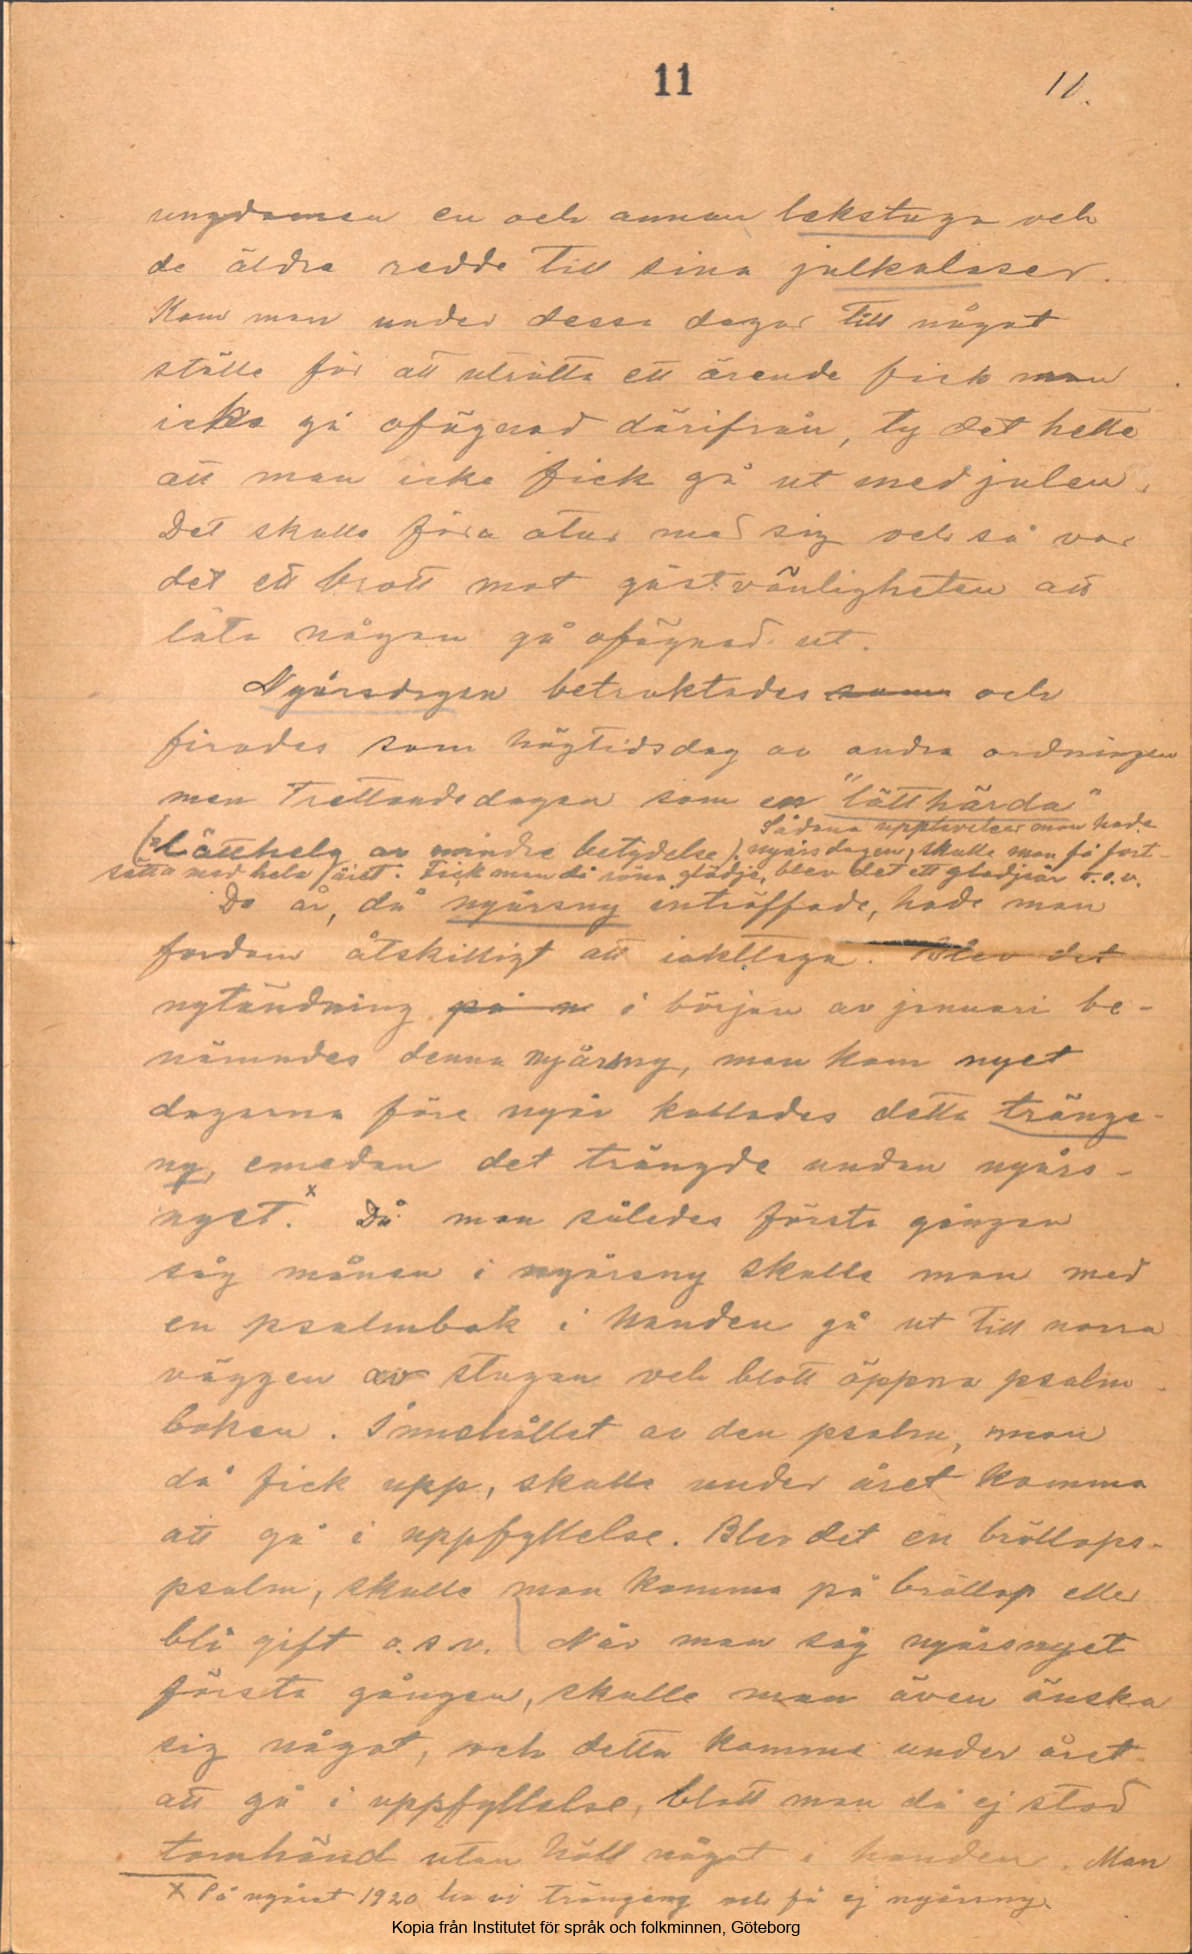 11
11.
ungdomen en och annan lekstuga och
de äldre redde till sina julkalaser.
Kom man under dessa dagar till något
ställe för att uträtta ett ärende fick man
icke gå ofägnad därifrån, ty det hette
att man icke fick gå ut med julen.
Det skulle föra otur med sig och så var
det ett brott mot gästvänligheten att
låta någon gå ofägnad ut.
Nyårsdagen betraktades som och
firades som högtidsdag av andra ordningen
men Trettondedagen som en "lätthärda"
Sådana upplevelser man hade
(lätthelg av mindre betydelse). nyårsdagen, skulle man få fort-
sätta med hela året. Fick man då röna glädje, blev det ett glädjeår o.s.v.
De år, då nyårsny inträffade, hade man
fordom åtskilligt att iakttaga. Blev det
nytändning på n i början av januari be-
nämndes denna nyårsny, man kom nyet
dagarna före nyår kallades detta tränge-
ny, emedan det trängde undan nyårs-
nyet.x Då man således första gången
såg månen i nyårsny skulle man med
en psalmbok i handen gå ut till norra
väggen av stugan och blott öppna psalm-
boken. Innehållet av den psalm, man
då fick upp, skulle under året komma
att gå i uppfyllelse. Blev det en bröllops-
psalm, skulle man komma på bröllop eller
bli gift o.s.v. När man såg nyårsnyet
första gången, skulle man även önska
sig något, och detta komme under året
att gå i uppfyllelse, blott man då ej stod
tomhänd utan höll något i handen. Man
x På nyåret 1920 ha vi trängeny och få ej nyårsny.
Kopia från Institutet för språk och folkminnen, Göteborg